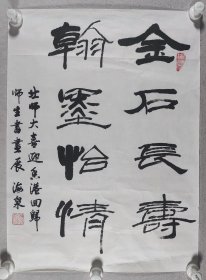 金石長壽
翰墨怡情
北师大喜迎香港回歸
师生書畫展 海泉